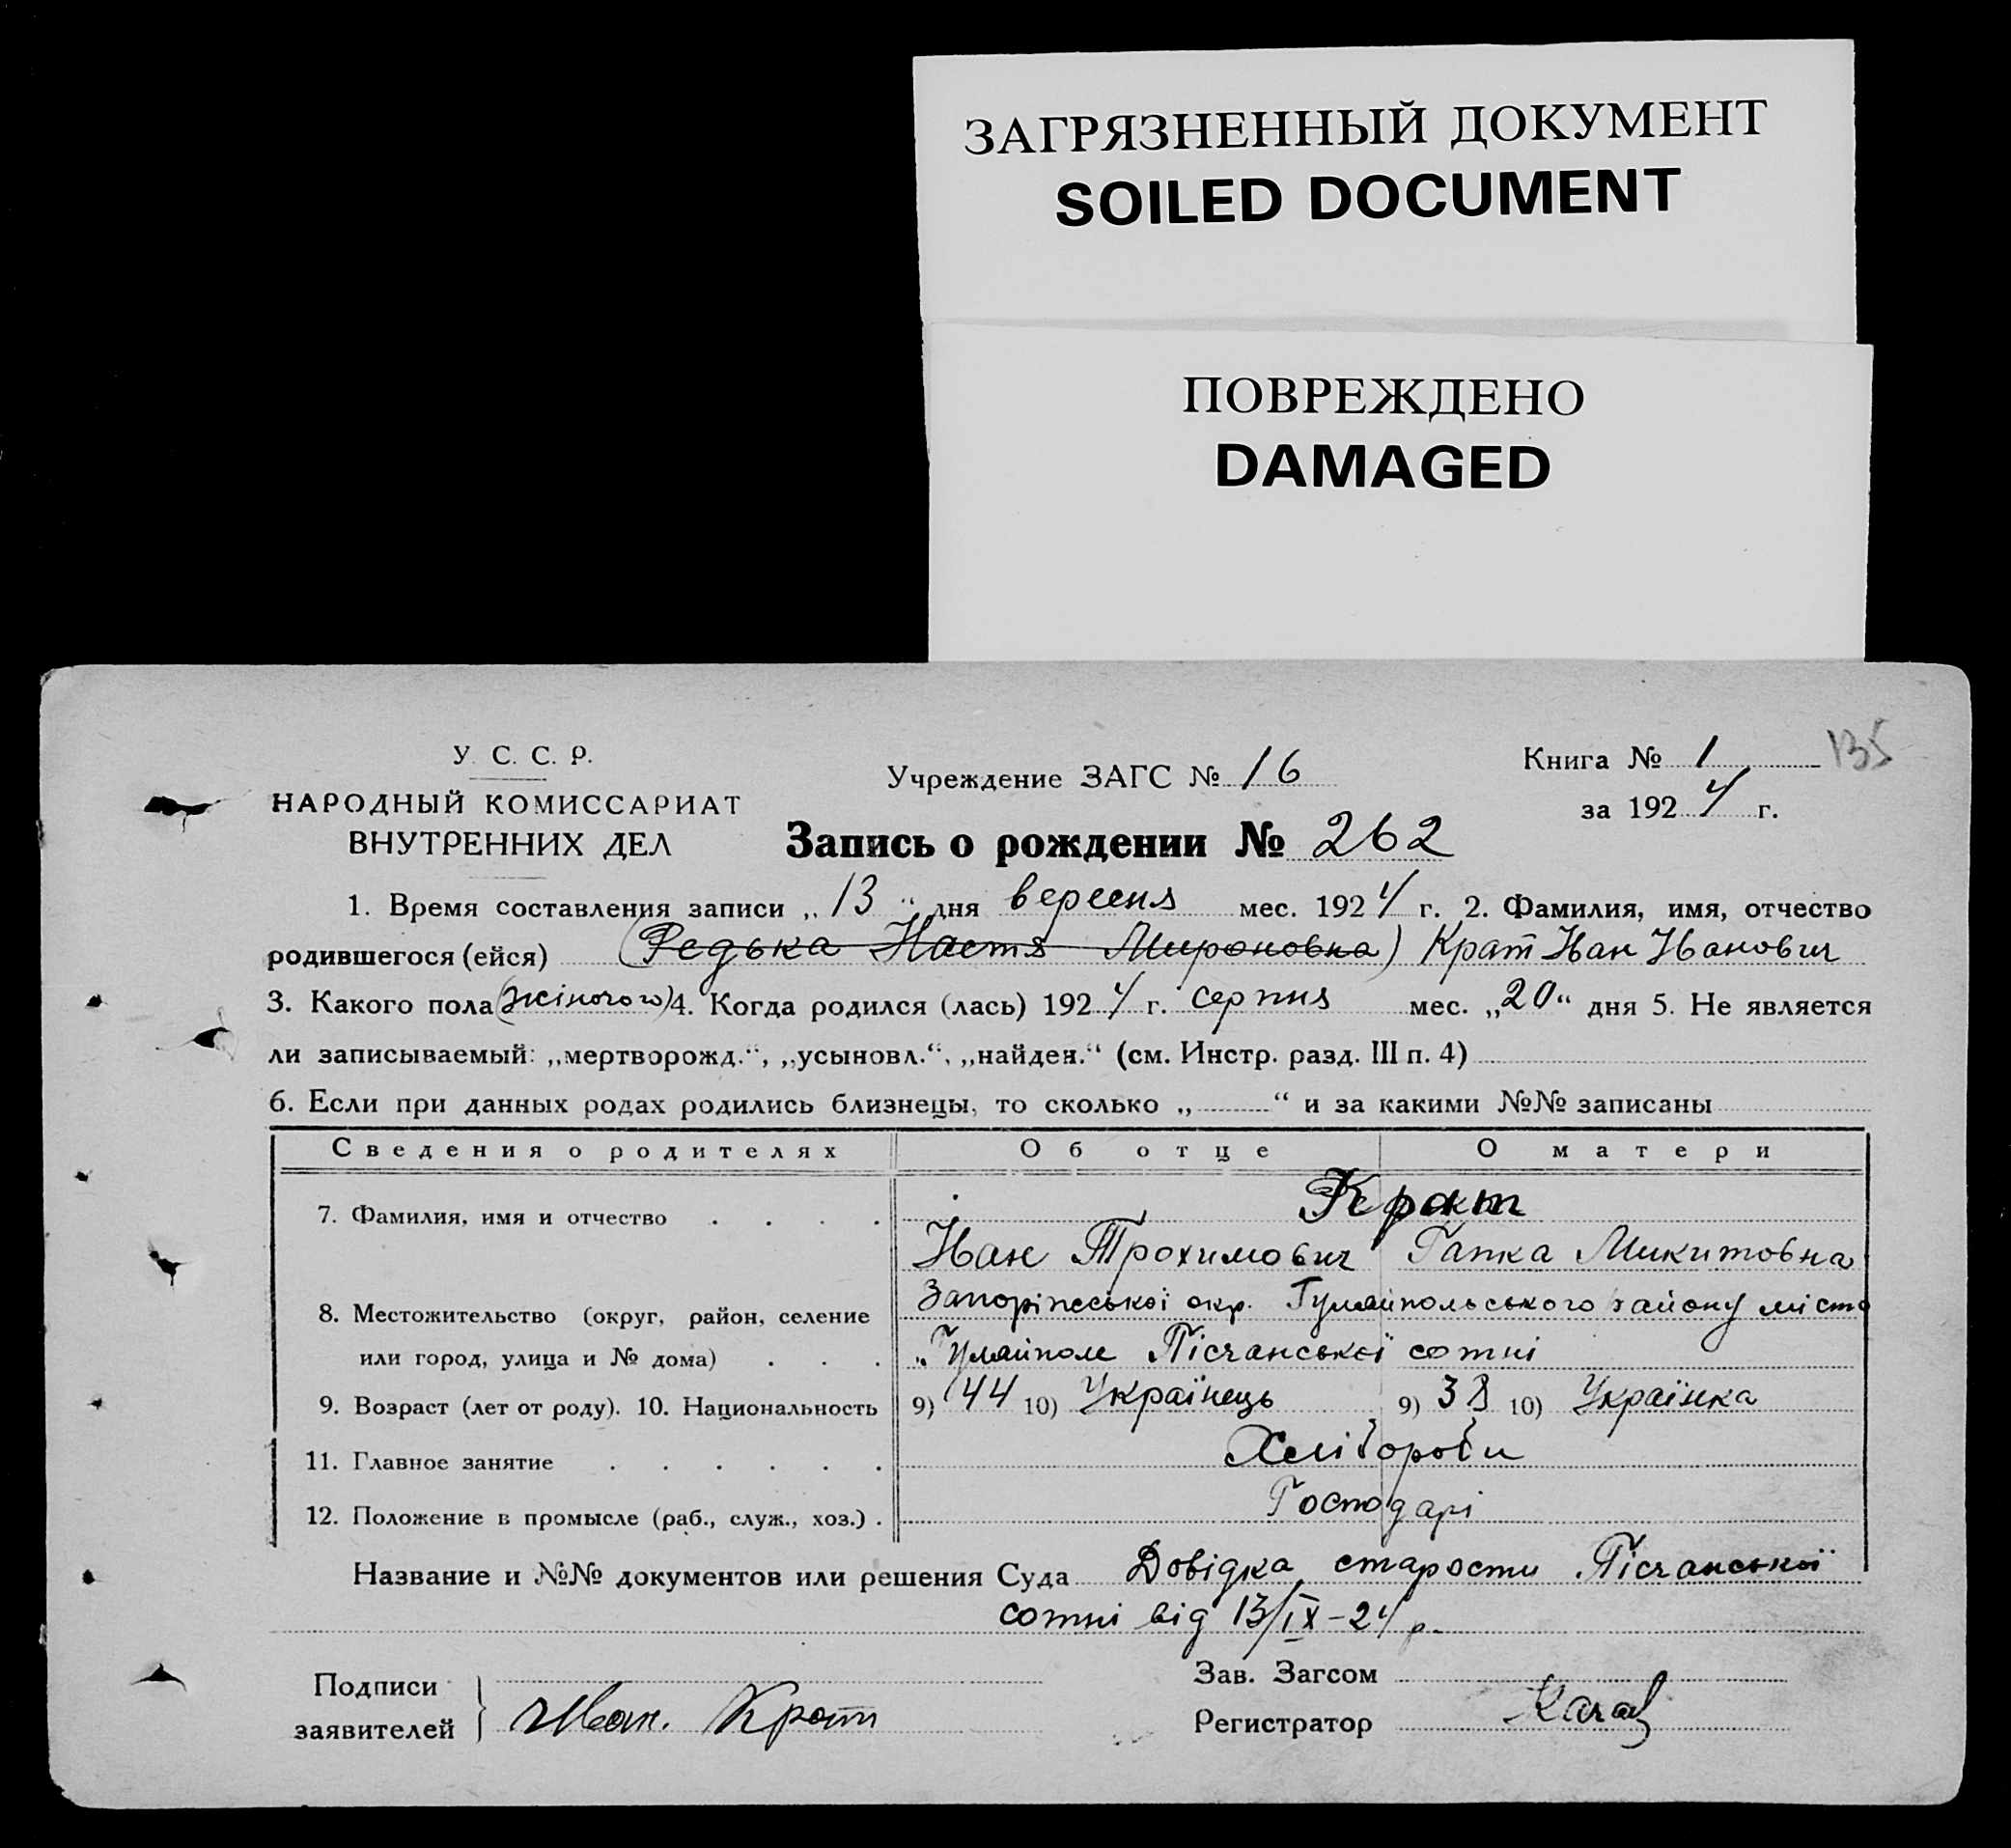 ЗАГРЯЗНЕННЫЙ ДОКУМЕНТ
SOILED DOCUMENT
ПОВРЕЖДЕНО
DAMAGED
У. С. С. Р.
НАРОДНЫЙ КОМИССАРИАТ
ВНУТРЕННИХ ДЕЛ
Учреждение ЗАГС № 16
Книга № 1
135
за 1924 г.
Запись о рождении № 262
1. Время составления записи „13“ дня вересня мес. 1924 г. 2. Фамилия, имя, отчество
родившегося (ейся) (Редька Настя Мироновна) Крат Иван Иванович
3. Какого пола (жіночого) 4. Когда родился (лась) 1924 г. серпня мес. „20“ дня 5. Не является
ли записываемый: „мертворожд.“, „усыновл.“, „найден.“ (см. Инстр. разд. III п. 4)
6. Если при данных родах родились близнецы, то сколько „ “ и за какими №№ записаны
Сведения о родителях Об отце О матери
7. Фамилия, имя и отчество . . . . Крат
Иван Трохимович Гапка Микитовна
8. Местожительство (округ, район, селение Запоріжської окр. Гуляйпольського району місто
или город, улица и № дома) . . . Гуляйполе Пісчанської сотні
9. Возраст (лет от роду). 10. Национальность 9) 44 10) Українець 9) 38 10) Українка
11. Главное занятие . . . . . . Хлібороби
12. Положение в промысле (раб., служ., хоз.) . Господарі
Название и №№ документов или решения Суда Довідка старости Пісчанської
сотні від 13/IX-24 р.
Подписи
заявителей Иван. Крат
Зав. Загсом
Регистратор